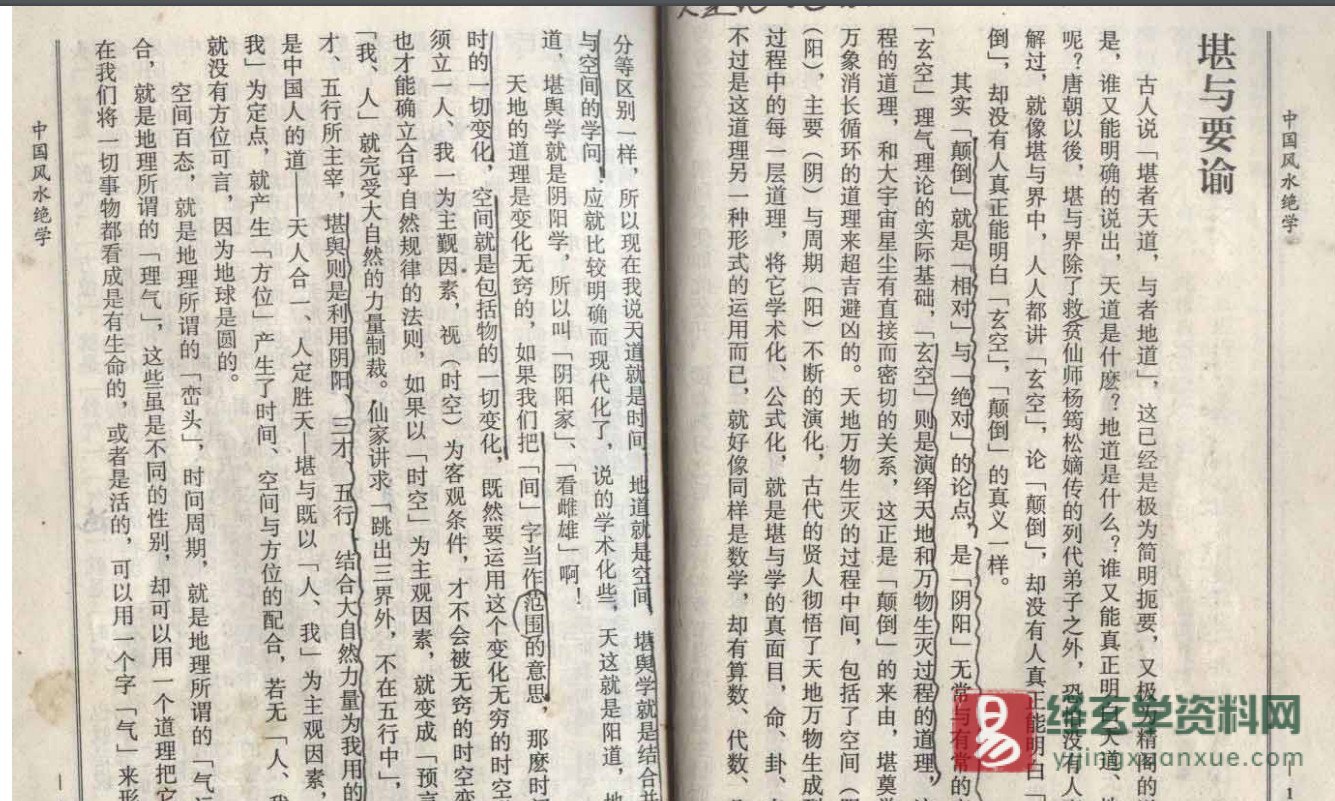 中国风水绝学
堪与要谕
古人说「堪者天道，与者地道」，这已经是极为简明扼要，又极为精阁的
是，谁又能明确的说出，天道是什麽？地道是什么？谁又能真正明白天道、地
呢？唐朝以後，堪与界除了救贫仙师杨筠松嫡传的列代弟子之外，恐怕没有人
解过，就像堪与界中，人人都讲「玄空」，论「颠倒」，却没有人真正能明白「
倒」，却没有人真正能明白「玄空」，「颠倒」的真义一样。
其实「颠倒」就是「相对」与「绝对」的论点，是「阴阳」无常与有常的
「玄空」理气理论的实际基础，「玄空」则是演绎天地和万物生灭过程的道理，
程的道理，和大宇宙星尘有直接而密切的关系，这正是「颠倒」的来由，堪奠学
万象消长循环的道理来超吉避凶的。天地万物生灭的过程中间，包括了空间（
（阳），主要（阴）与周期（阳）不断的演化，古代的贤人彻悟了天地万物生成
过程中的每一层道理，将它学术化、公式化，就是堪与学的真面目，命、卦、
不过是这道理另一种形式的运用而已，就好像同样是数学，却有算数、代数、
分等区别一样，所以现在我说天道就是时间，地道就是空间，堪舆学就是结合
与空间的学问，应就比较明确而现代化了，说的学术化些，天这就是阳道，
道，堪舆学就是阴阳学，所以叫「阴阳家」、「看雌雄」啊！
天地的道理是变化无穷的，如果我们把「间」字当作范围的意思，那麽时
时的一切变化，空间就是包括物的一切变化，既然要运用这个变化无穷的时空
须立一人、我一为主觐因素，视（时空）为客观条件，才不会被无窍的时空变
也才能确立合乎自然规律的法则，如果以「时空」为主观因素，就变成「预言
「我、人」就完受大自然的力量制裁。仙家讲求「跳出三界外，不在五行中」，
才、五行所主宰，堪舆则是利用阴阳、三才、五行，结合大自然力量为我用的
是中国人的道——天人合一、人定胜天—堪与既以「人、我」为主观因素，
我」为定点，就产生「方位」产生了时间、空间与方位的配合，若无「人、我
就没有方位可言，因为地球是圆的。
空间百态，就是地理所谓的「峦头」，时间周期，就是地理所谓的「气
合，就是地理所谓的「理气」，这些虽是不同的性别，却可以用一个道理把它
在我们将一切事物都看成是有生命的，或者是活的，可以用一个字「气」来形
中国风水绝学
易
经玄学资料网
yijingxuanxue.com